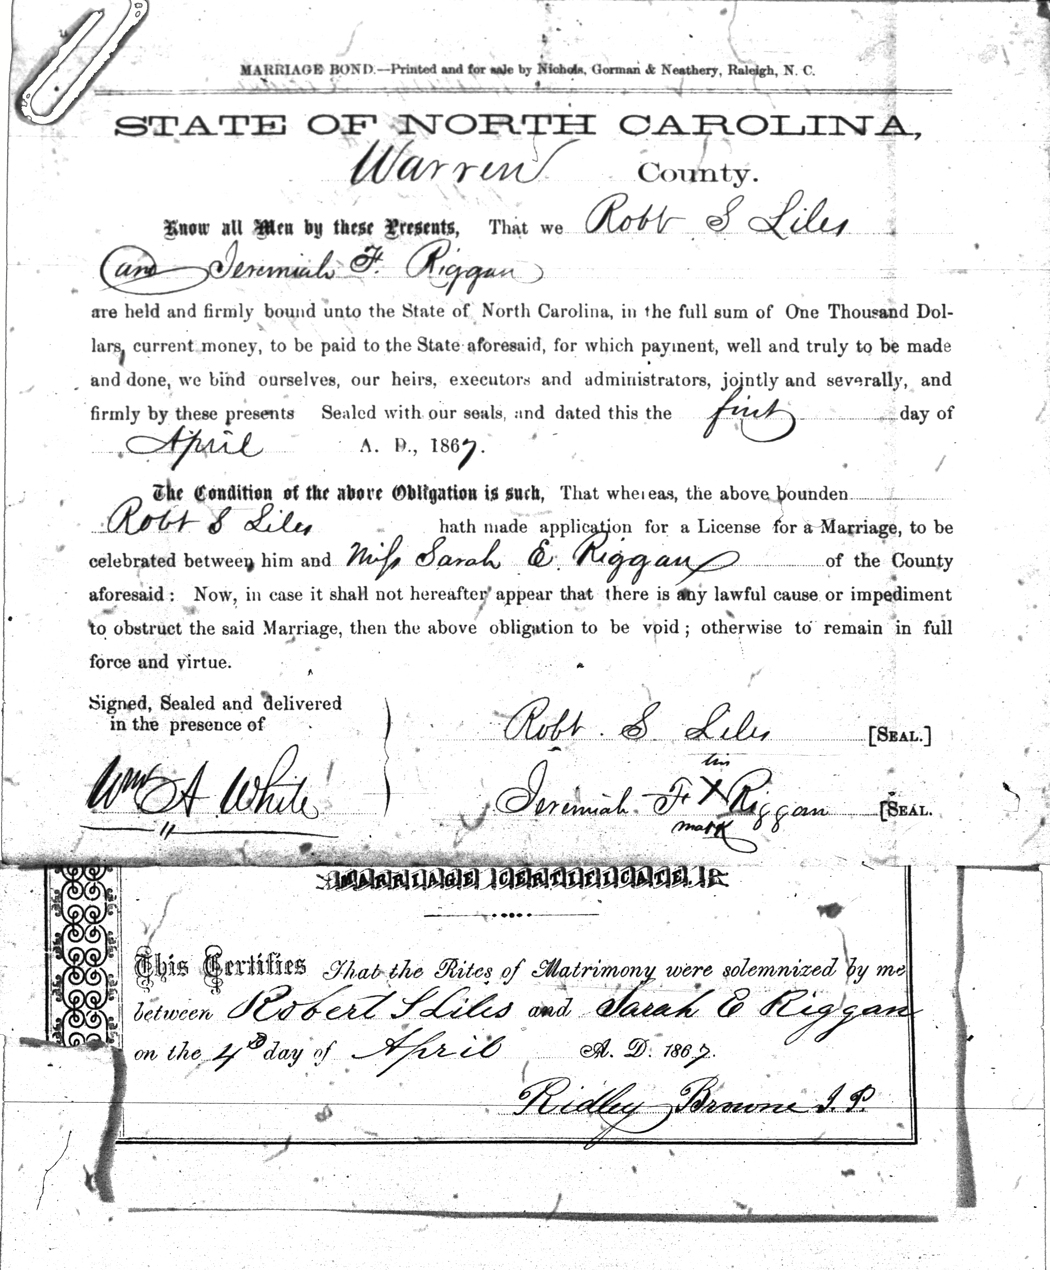 MARRIAGE BOND.—Printed and for sale by Nichols, Gorman & Neathery, Raleigh, N. C.
STATE OF NORTH CAROLINA,
Warren County.
Know all Men by these Presents, That we Robt S Liles
and Jeremiah F. Riggan
are held and firmly bound unto the State of North Carolina, in the full sum of One Thousand Dol-
lars, current money, to be paid to the State aforesaid, for which payment, well and truly to be made
and done, we bind ourselves, our heirs, executors and administrators, jointly and severally, and
firmly by these presents Sealed with our seals, and dated this the first day of
April A. D., 1867.
The Condition of the above Obligation is such, That whereas, the above bounden
Robt S Liles hath made application for a License for a Marriage, to be
celebrated between him and Miss Sarah E. Riggan of the County
aforesaid: Now, in case it shall not hereafter appear that there is any lawful cause or impediment
to obstruct the said Marriage, then the above obligation to be void; otherwise to remain in full
force and virtue.
Signed, Sealed and delivered
in the presence of
Robt. S. Liles [SEAL.]
his
Wm A. White
Jeremiah F X Riggan [SEAL.
mark
MARRIAGE CERTIFICATE.
This Certifies That the Rites of Matrimony were solemnized by me
between Robert S Liles and Sarah E Riggan
on the 4th day of April A. D. 1867.
Ridley Browne J. P.